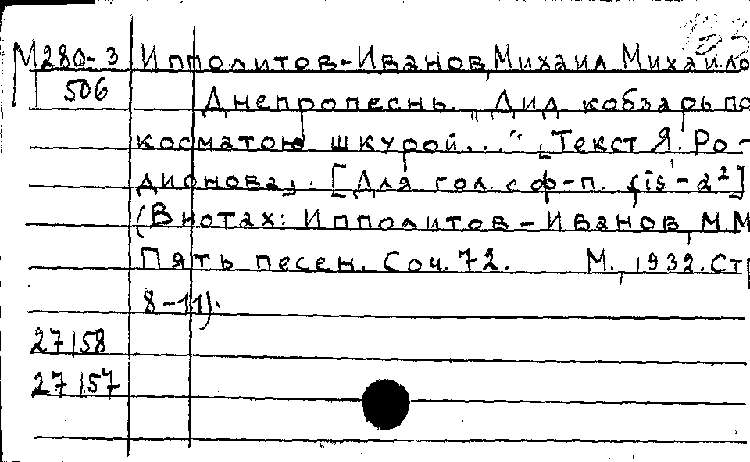 М280-3 Ипполитов-Иванов, Михаил Михайло
506 Днепропеснь. „Дид кобзарь по
косматою шкурой..." [Текст Я. Ро-
дионова]. [Для гол. с ф-п. fis¹-a²]
(В нотах: Ипполитов-Иванов, М.М
Пять песен. Соч. 72. М., 1932. Стр
8-11).
27158
27157